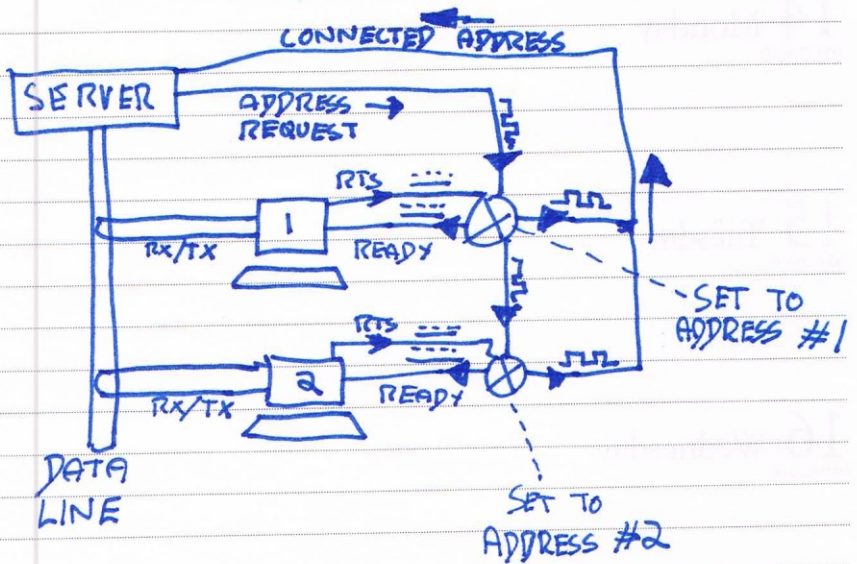 CONNECTED ADDRESS
SERVER
ADDRESS
REQUEST
RTS
1
RX/TX
READY
SET TO
ADDRESS #1
RTS
2
RX/TX
READY
DATA
LINE
SET TO
ADDRESS #2